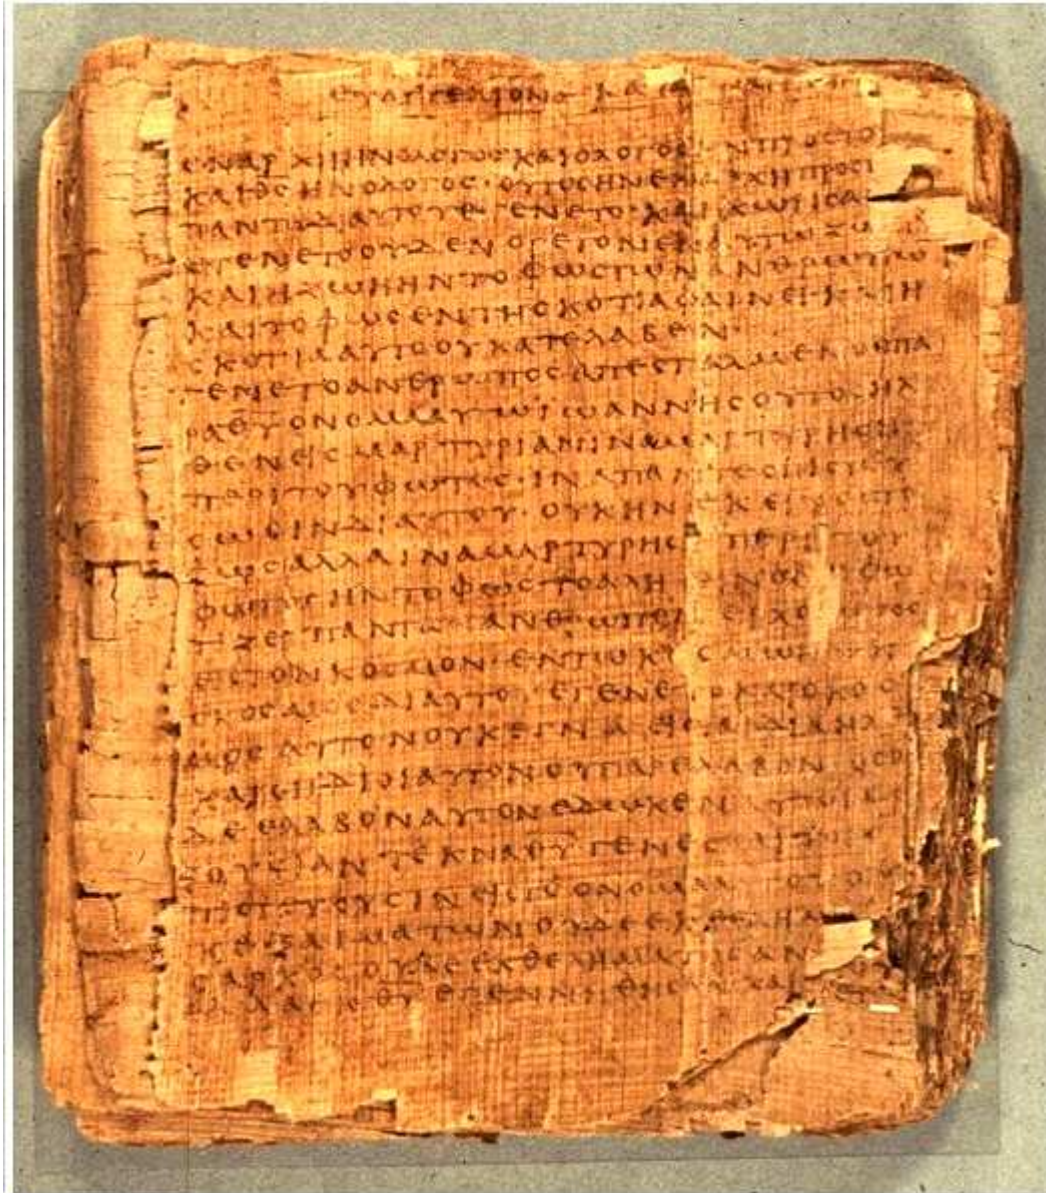 ΕΥΑΓΓΕΛΙΟΝ ΚΑΤΑ
ΕΝΑΡΧΗΗΝΟΛΟΓΟϹΚΑΙΟΛΟΓΟϹ
ΚΑΙΘϹΗΝΟΛΟΓΟϹ·ΟΥΤΟϹΗΝΕΝΑΡΧΗΠΡΟϹ
ΠΑΝΤΑΔΙΑΥΤΟΥΕΓΕΝΕΤΟ·ΚΑΙΧΩΡΙϹΑ
ΕΓΕΝΕΤΟΟΥΔΕΝΟΓΕΓΟΝΕΝΕΝΑΥΤΩΖΩ
ΚΑΙΗΖΩΗΗΝΤΟΦΩϹΤΩΝΑΝΘΡΩΠΩ
ΚΑΙΤΟΦΩϹΕΝΤΗϹΚΟΤΙΑΦΑΙΝΕΙ·ΚΑΙΗ
ϹΚΟΤΙΑΑΥΤΟΟΥΚΑΤΕΛΑΒΕΝ·
ΕΓΕΝΕΤΟΑΝΘΡΩΠΟϹΑΠΕϹΤΑΛΜΕΝΟϹΠΑ
ΡΑΘΥΟΝΟΜΑΑΥΤΩΙΩΑΝΝΗϹΟΥΤΟϹΗΛ
ΘΕΝΕΙϹΜΑΡΤΥΡΙΑΝΙΝΑΜΑΡΤΥΡΗϹΗ
ΠΕΡΙΤΟΥΦΩΤΟϹ·ΙΝΑΠΑΝΤΕϹΠΙϹΤΕΥ
ϹΩϹΙΝΔΙΑΥΤΟΥ·ΟΥΚΗΝΕΚΕΙΝΟϹΤΟ
ΦΩϹΑΛΛΑΙΝΑΜΑΡΤΥΡΗϹΗΠΕΡΙΤΟΥ
ΦΩΤΟϹΗΝΤΟΦΩϹΤΟΑΛΗΘΙΝΟΝΟΦΩ
ΤΙΖΕΙΠΑΝΤΑΑΝΘΡΩΠΟΝΕΡΧΟΜΕΝΟ
ΕΙϹΤΟΝΚΟϹΜΟΝ·ΕΝΤΩΚΟϹΜΩΗΝΚΑΙ
ΟΚΟϹΜΟϹΔΙΑΥΤΟΥΕΓΕΝΕΤΟΚΑΙΟΚΟϹ
ΜΟϹΑΥΤΟΝΟΥΚΕΓΝΩΕΙϹΤΑΙΔΙΑΗΛΘΕ
ΚΑΙΟΙΙΔΙΟΙΑΥΤΟΝΟΥΠΑΡΕΛΑΒΟΝ·ΟϹΟΙ
ΔΕΕΛΑΒΟΝΑΥΤΟΝΕΔΩΚΕΝΑΥΤΟΙϹΕ
ΞΟΥϹΙΑΝΤΕΚΝΑΘΥΓΕΝΕϹ
ΠΙϹΤΕΥΟΥϹΙΝΕΙϹΤΟΟΝΟΜΑΑΥΤΟΥΟΙ
ΟΥΔΕΕΚΘΕΛΗΜΑ
ϹΑΡΚΟϹΟΥΔΕΕΚΘΕΛΗΜΑΤΟϹΑΝ
ΑΛΛΑΕΚΘΥΕΓΕΝΝΗΘΗϹΑΝΚΑΙ